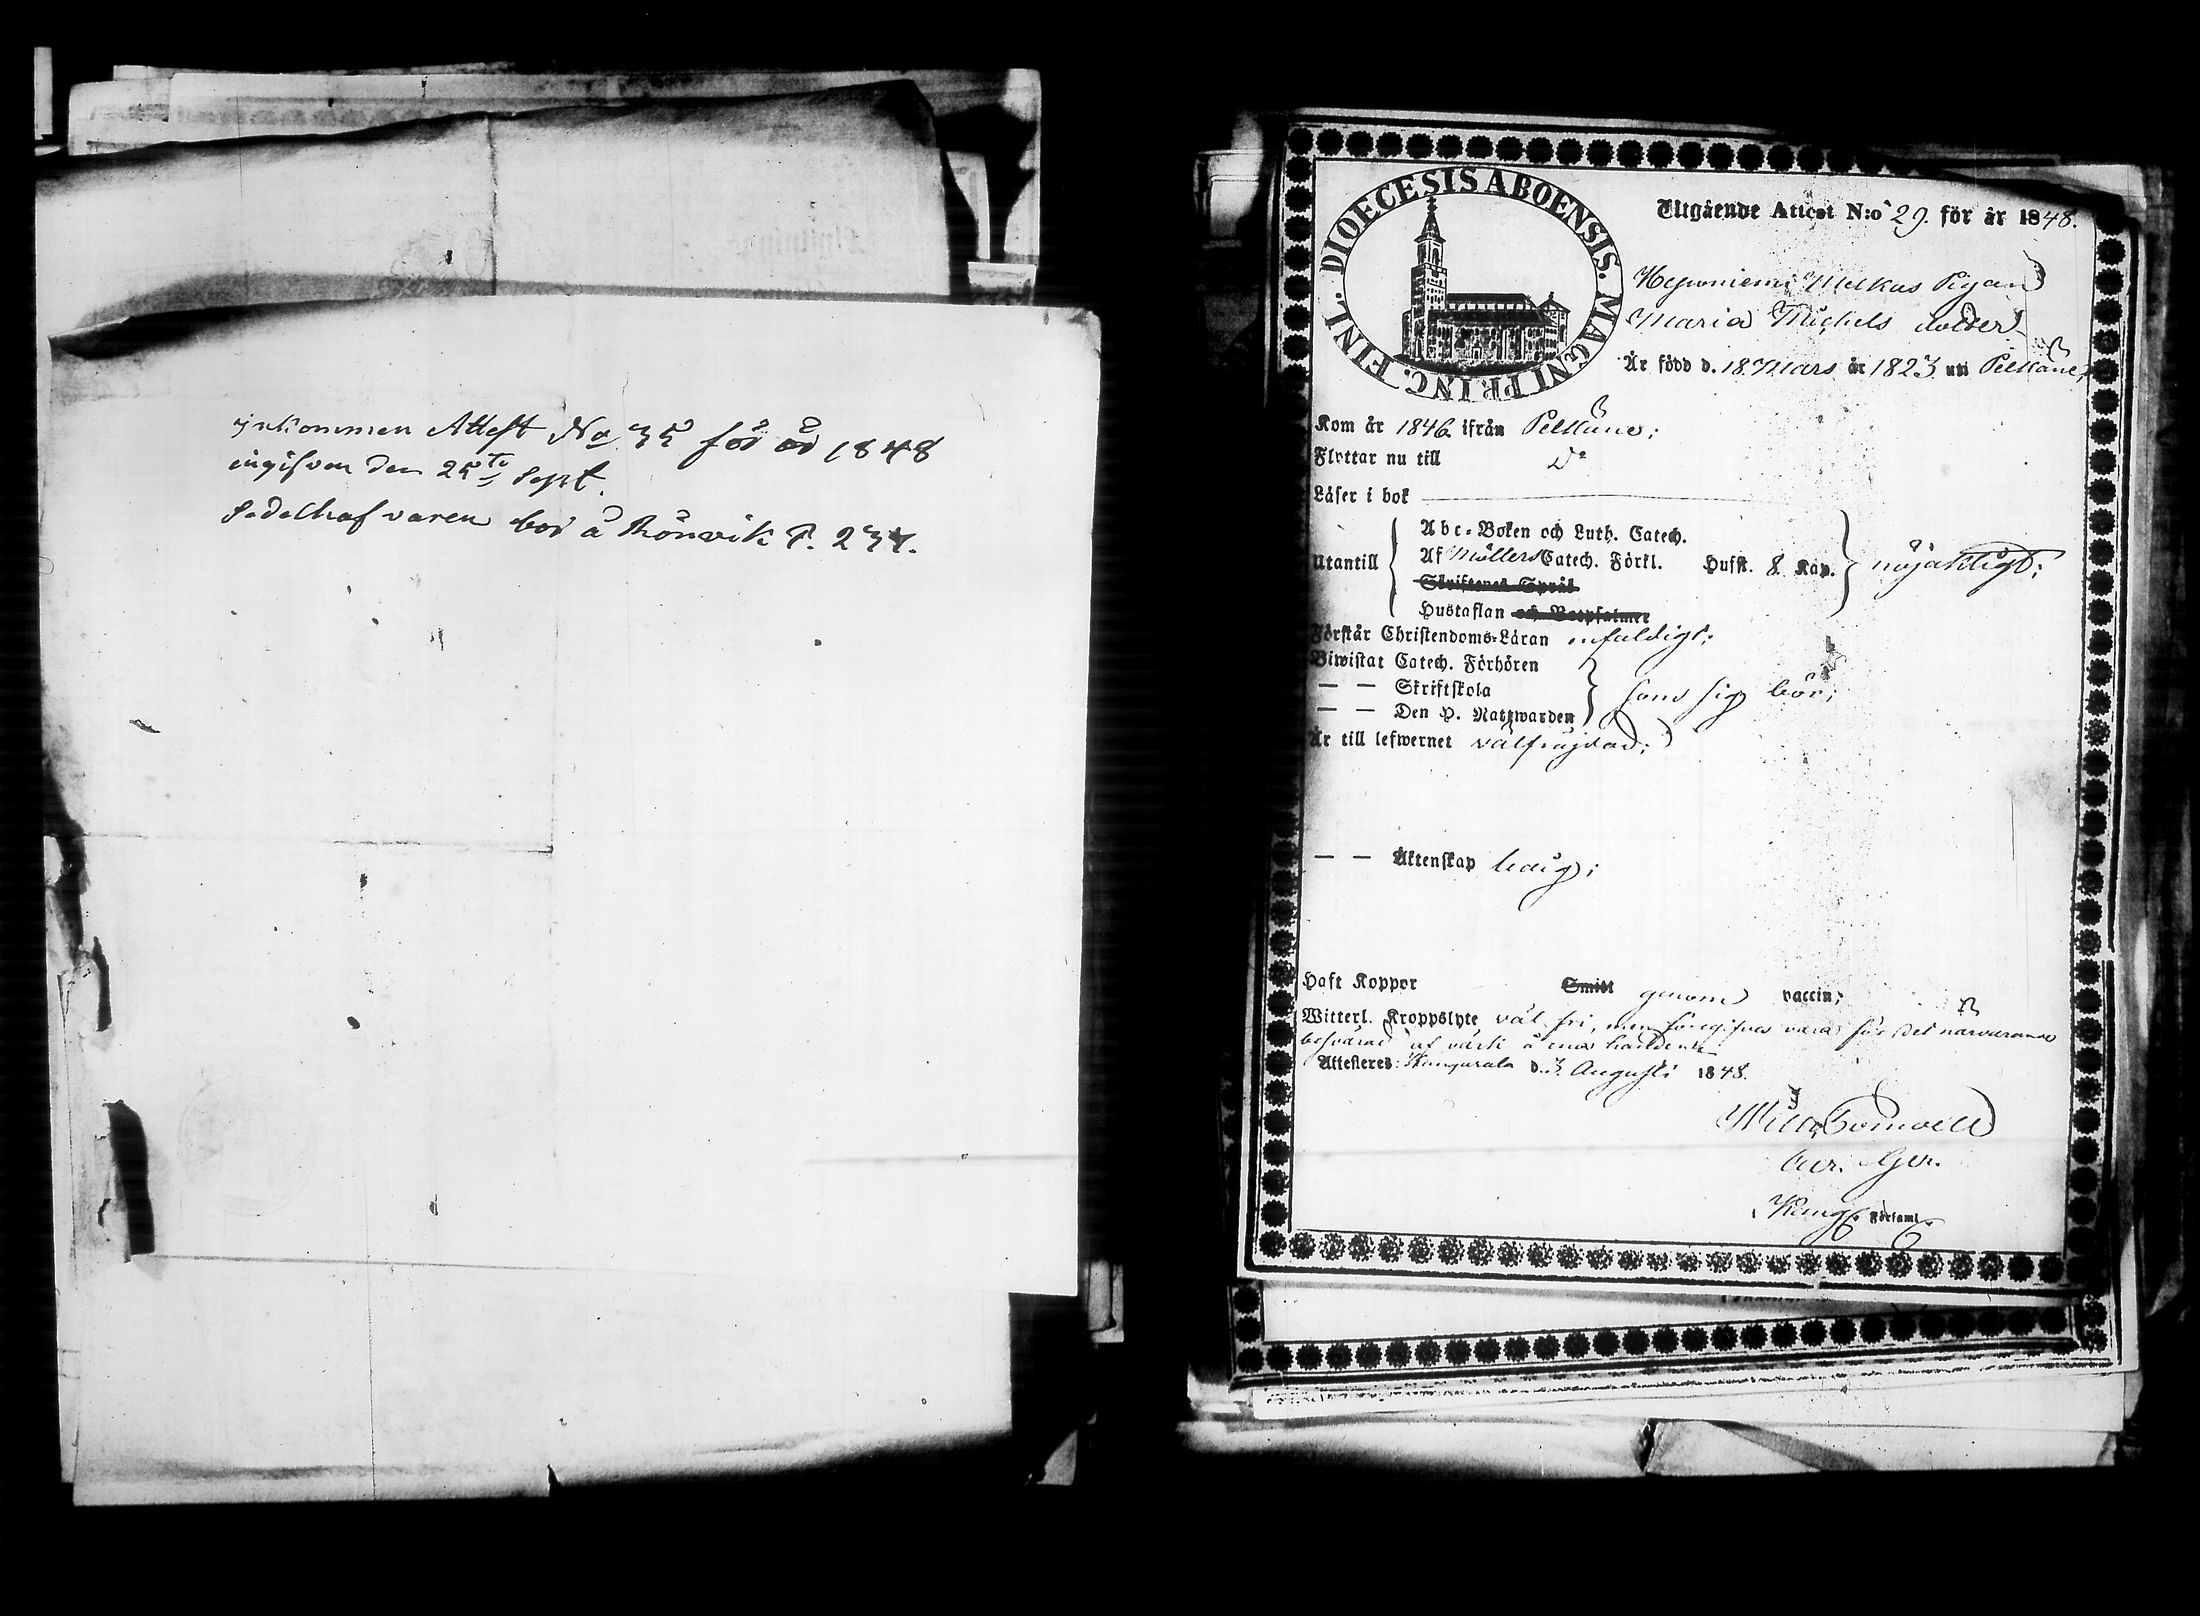 inkommen Attest No 35 för år 1848
ingifven den 25te Sept.
Sedelhafvaren bor å Rönvik P. 237.
DIOECESIS ABOENSIS. MAGNI PRINC. FINL.
Utgående Attest N:o 29. för år 1848.
Melkas Pigan
Maria Michels dotter
Är född d. 18 Mars år 1823 uti Pelkäne;
Kom år 1846 ifrån Pelkäne;
Flyttar nu till Do
Läser i bok
Abc-Boken och Luth. Catech.
Utantill Af Möllers Catech. Förkl. Husst. 8 Kap. nöjaktigt;
Skriftenes Språk
Hustaflan och Botpsalmer
Förstår Christendoms-Läran enfaldigt;
Biwistat Catech. Förhören
— — Skriftskola som sig bör;
— — Den H. Nattwarden
Är till lefwernet välfräjdad;
— — Äktenskap ledig;
Haft Koppor Smitt genom vaccin;
Witterl. Kroppslyte väl fri, men föregifves vara för det närvarande
besvärad af värk i ena handen
Attesteras: Kangasala d. 3 Augusti 1848.
Kang. Församl.